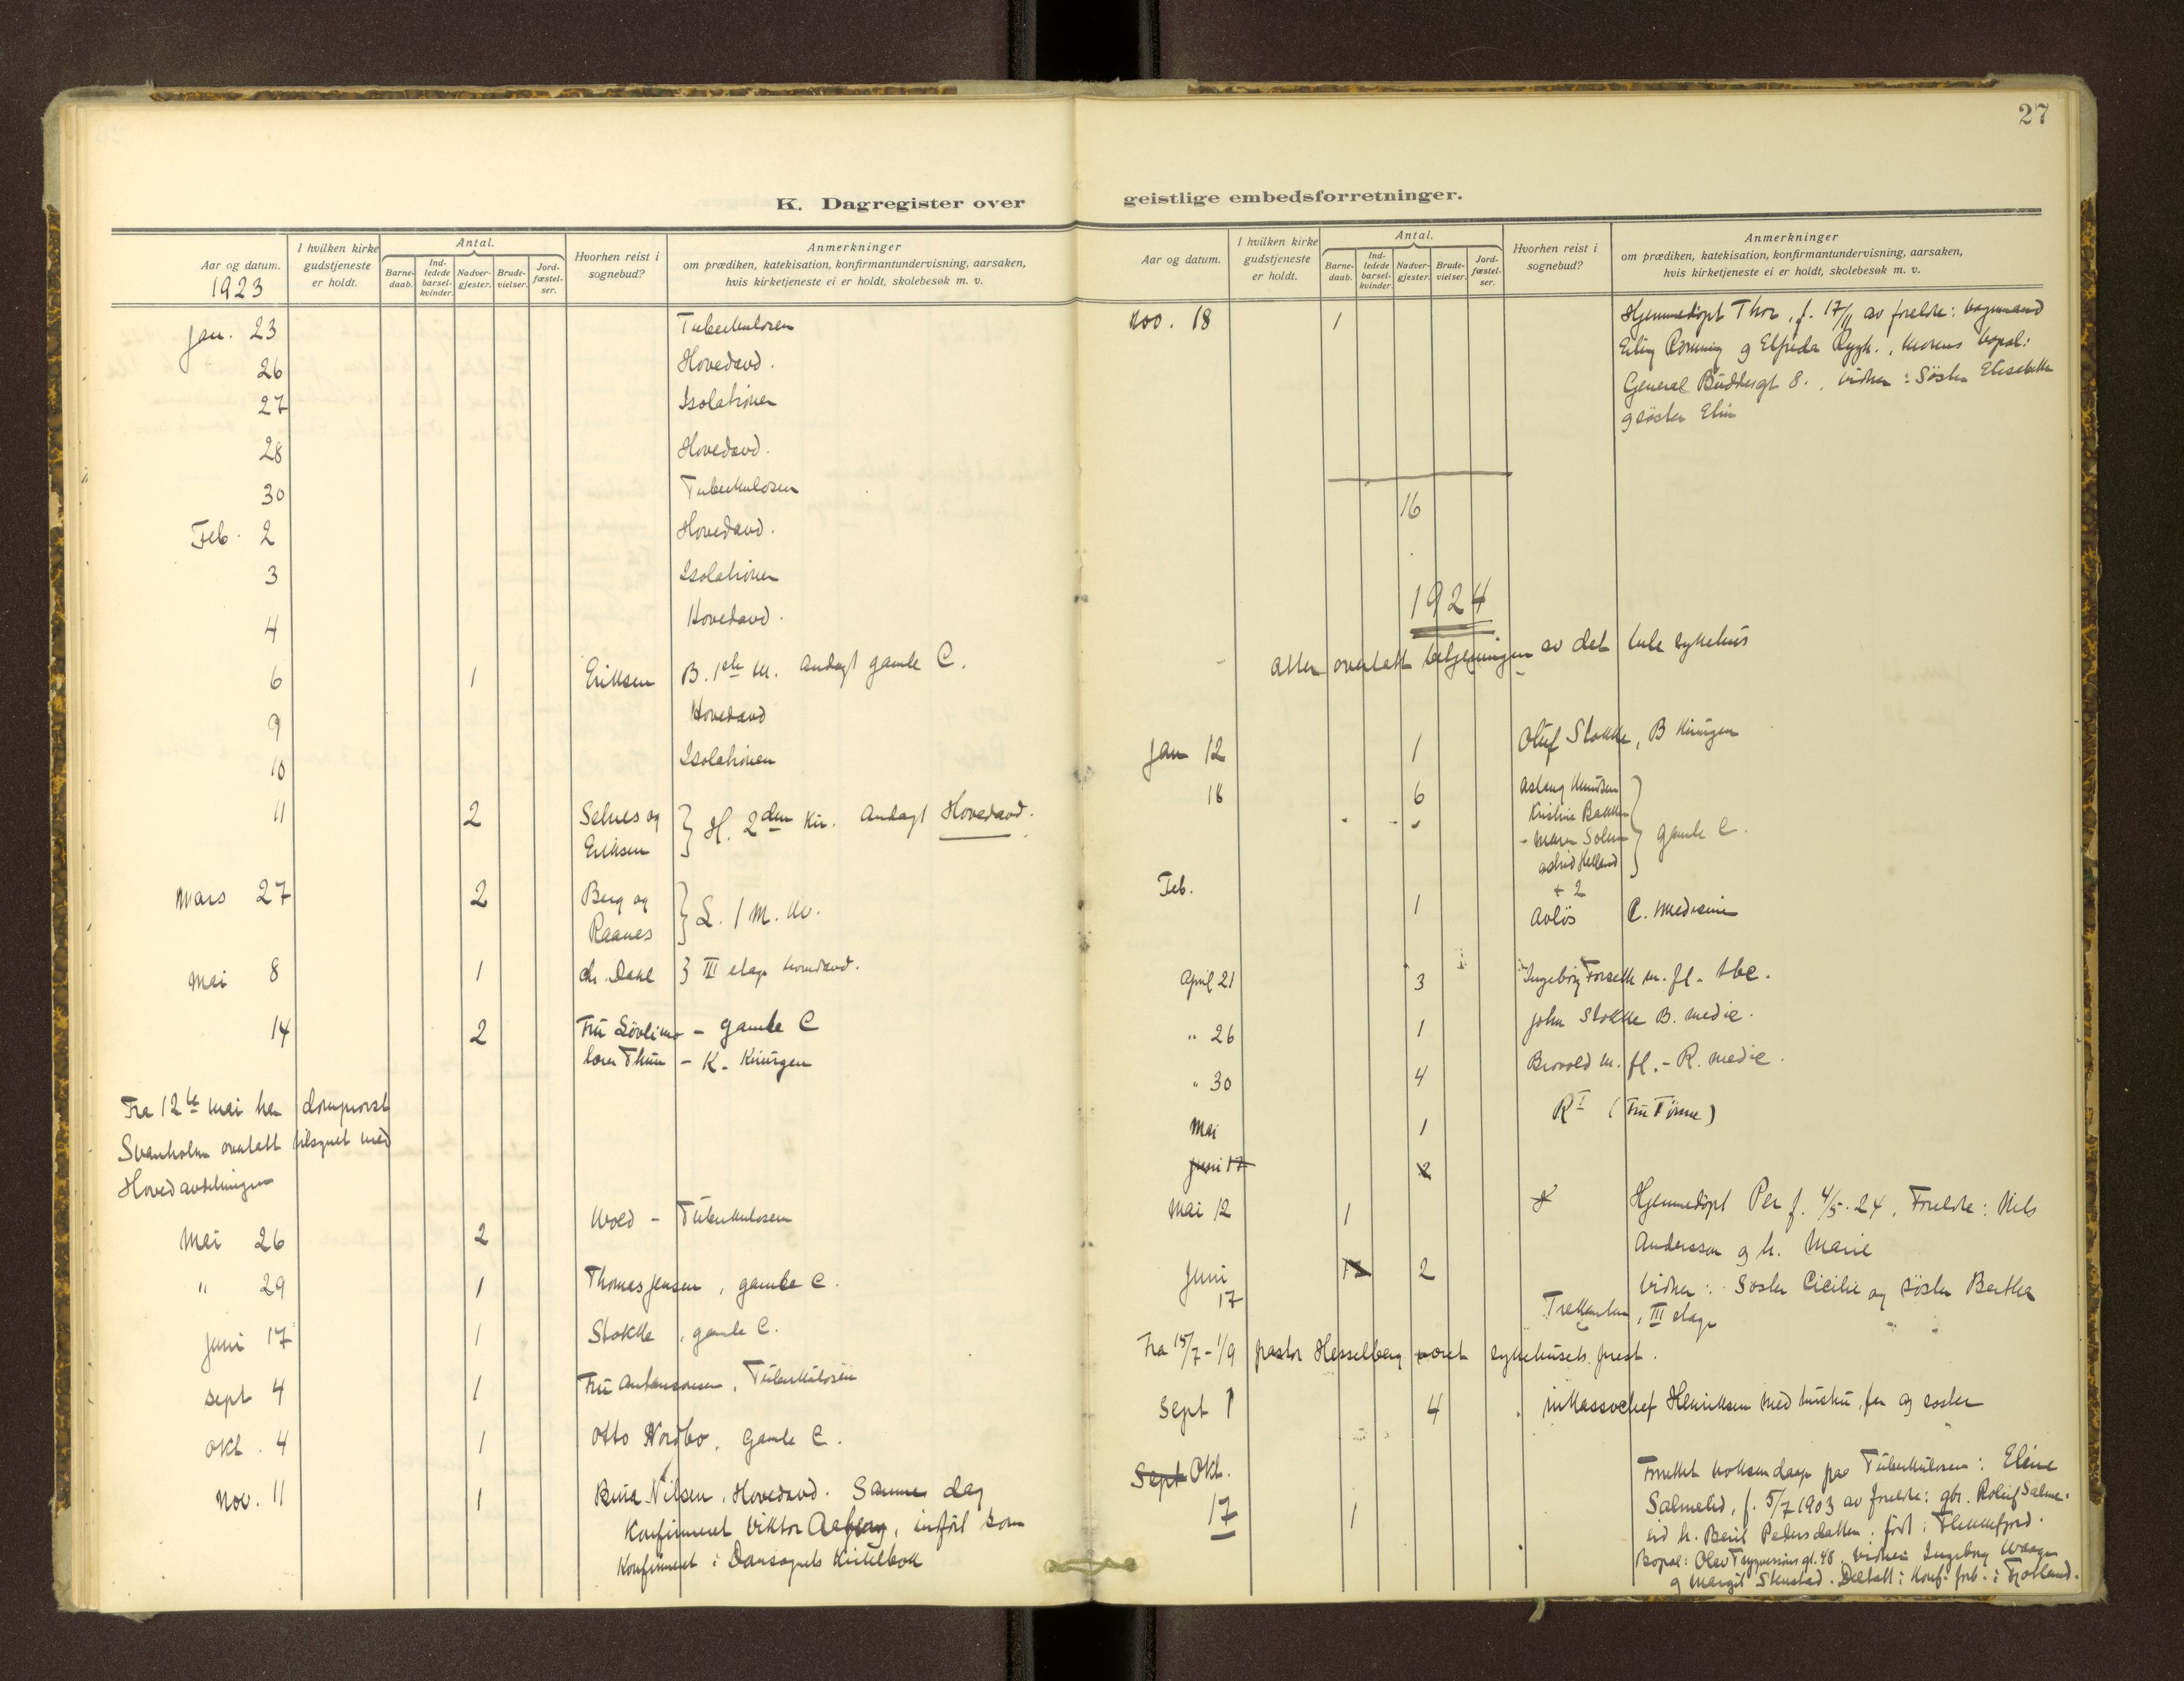 27
K. Dagregister over geistlige embedsforretninger.
Aar og datum.
1923
I hvilken kirke gudstjeneste er holdt.
Antal.
Barne-daab.
Ind-ledede barsel-kvinder.
Nadver-gjester.
Brude-vielser.
Jord-fæstel-ser.
Hvorhen reist i sognebud?
Anmerkninger
om prædiken, katekisation, konfirmantundervisning, aarsaken,
hvis kirketjeneste ei er holdt, skolebesøk m. v.
Jan. 23 Tuberkulosen
26 Hovedavd.
27 Isolationen
28 Hovedavd.
30 Tuberkulosen
Feb. 2 Hovedavd.
3 Isolationen
4 Hovedavd.
6 1 Eriksen B. 1ste M. Andagt gamle C.
9 Hovedavd
10 Isolationen
11 2 Selnes og Eriksen } H. 2den Kir. Andagt Hovedavd.
Mars 27 2 Berg og Raanes } L. 1 M. Kv.
Mai 8 1 Chr. Dahl } III etage hovedavd.
14 2 Fru Lövlimo - gamle C
Thun - K. Kirurgen
Fra 12te mai har domprovst
Svanholm overtatt tilsynet med
Hovedavdelingen
Mai 26 2 Wold - Tuberkulosen
" 29 1 Thomas Jensen, gamle C.
Juni 17 1 Stokke, gamle C.
Sept 4 1 Fru Antonsen, Tuberkulosen
Okt. 4 1 Otto Nordbo, gamle C.
Nov. 11 1 Nilsen, Hovedavd. Samme dag
Konfirmert Viktor, indført som
Konfirmert i Domsognets Kirkebok
Aar og datum.
I hvilken kirke gudstjeneste er holdt.
Antal.
Barne-daab.
Ind-ledede barsel-kvinder.
Nadver-gjester.
Brude-vielser.
Jord-fæstel-ser.
Hvorhen reist i sognebud?
Anmerkninger
om prædiken, katekisation, konfirmantundervisning, aarsaken,
hvis kirketjeneste ei er holdt, skolebesøk m. v.
Nov. 18 1 Hjemmedøpt Thor, f. 17/11 av foreldre: vognmand
Erling og Elfrida Rygh., morens bopæl:
General Buddesgt 8., vidner: Søster Elisabeth
og søster Elin
16
1924
Atter overtatt betjeningen av det hele sykehus
Jan 12 1 Oluf Stokke, B Kirurgen
18 6 Aslaug Knudsen
Kristine Bakken
- Maren Solem
Astrid Helland
+ 2
} gamle C.
Feb. 1 Avløs C. Medisin
April 21 3 Ingeborg Forseth m. fl. tbc.
" 26 1 John Stokke B. medic.
" 30 4 Brovold m. fl. - R. medic.
Mai 1 R I (Fru Tønne)
Juni 17 2
Mai 12 1 Hjemmedøpt Per f. 4/5.24. Foreldre: Nils
Andersson og h. Marie
Vidner: Søster Cicilie og søster Bertha
Juni 17 2 Trekanten, III etage
Fra 15/7 - 1/9 pastor Hesselberg vært sykehusets prest.
Sept 1 4 inkassochef Henriksen med hustru, far og søster
Sept Okt. 17 1 Forrettet voksendaap paa Tuberkulosen: Eline
Salmelid, f. 5/7 1903 av foreldre: gbr. Roluf Salme-
lid h. Beril Pedersdatter. født i Flekkefjord.
Bopæl: Olav Trygvesøns gt. 48 Vidner Ingeborg Waagen
og Margit Stenstad. Deltatt i konf. forb. i Fjotland.